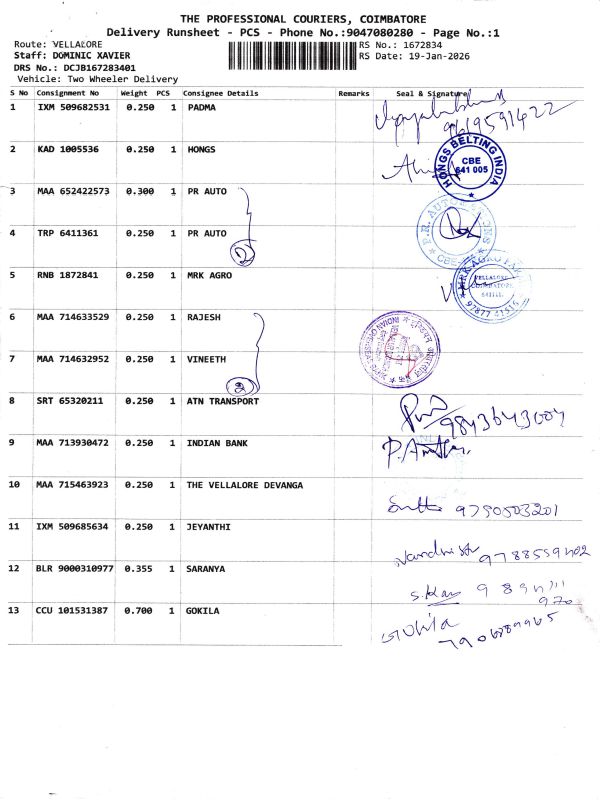 THE PROFESSIONAL COURIERS, COIMBATORE
Delivery Runsheet - PCS - Phone No.:9047080280 - Page No.:1
Route: VELLALORE RS No.: 1672834
Staff: DOMINIC XAVIER RS Date: 19-Jan-2026
DRS No.: DCJB167283401
Vehicle: Two Wheeler Delivery
S No Consignment No Weight PCS Consignee Details Remarks Seal & Signature
1 IXM 509682531 0.250 1 PADMA
9619591422
2 KAD 1005536 0.250 1 HONGS
HONGS BELTING INDIA
CBE
641 005
3 MAA 652422573 0.300 1 PR AUTO
4 TRP 6411361 0.250 1 PR AUTO
2
5 RNB 1872841 0.250 1 MRK AGRO
MRK AGRO
VELLALORE
COIMBATORE
97877 41516
6 MAA 714633529 0.250 1 RAJESH
7 MAA 714632952 0.250 1 VINEETH
2
8 SRT 65320211 0.250 1 ATN TRANSPORT
9843643004
9 MAA 713930472 0.250 1 INDIAN BANK
10 MAA 715463923 0.250 1 THE VELLALORE DEVANGA
9790503201
11 IXM 509685634 0.250 1 JEYANTHI
9788559402
12 BLR 9000310977 0.355 1 SARANYA
13 CCU 101531387 0.700 1 GOKILA
Gokila